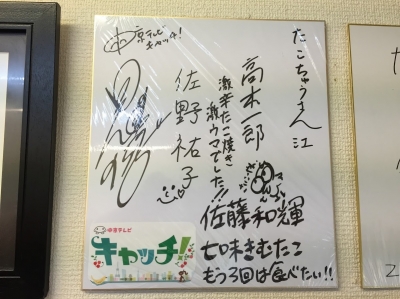 たこちゅうさん江
高木一郎
激辛たこ焼き
激ウマでした!!!
佐野祐子
中京テレビ
キャッチ!
佐藤和輝
七味きむたこ
もう3回は食べたい!!
中京テレビ
キャッチ!